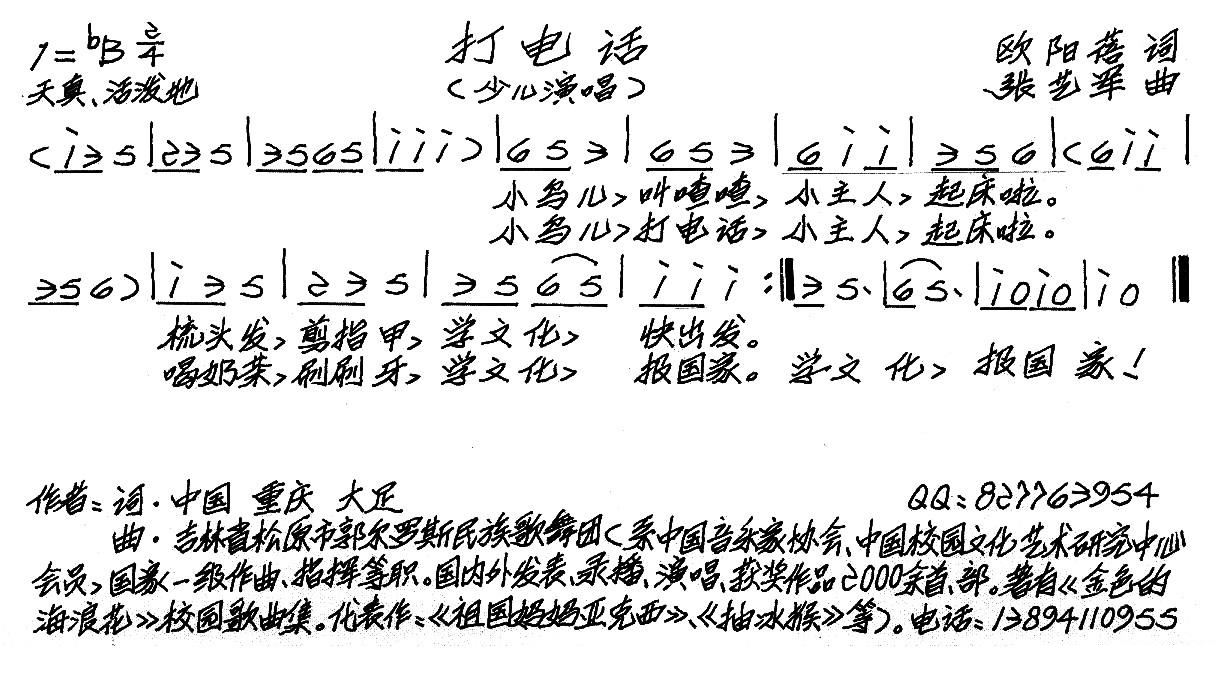 1=ᵇB 2/4 打电话 欧阳蓓 词
天真、活泼地 (少儿演唱) 张艺军 曲
(i̇ 3 5 | 2 3 5 | 3 5 6 5 | i̇ i̇ i̇) | 6 5 3 | 6 5 3 | 6 i̇ i̇ | 3 5 6 | (6 i̇ i̇ |
小鸟儿,叫喳喳,小主人,起床啦。
小鸟儿,打电话,小主人,起床啦。
3 5 6) | i̇ 3 5 | 2 3 5 | 3 5 6 5 | i̇ i̇ i̇ :‖ 3 5. | 6 5. | i̇ 0 i̇ 0 | i̇ 0 ‖
梳头发,剪指甲,学文化,快出发。
喝奶茶,刷刷牙,学文化,报国家。学文化,报国家!
作者:词·中国 重庆 大足 QQ:827763954
曲·吉林省松原市郭尔罗斯民族歌舞团(系中国音乐家协会、中国校园文化艺术研究中心
会员,国家一级作曲、指挥等职。国内外发表、录播、演唱、获奖作品2000余首、部。著有《金色的
海浪花》校园歌曲集。代表作:《祖国妈妈亚克西》、《抽冰猴》等)。电话:13894110955